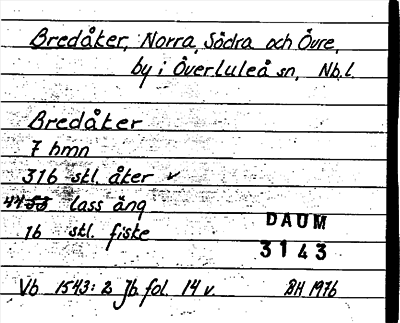 Bredåker, Norra, Södra och Övre,
by i Överluleå sn, Nb.l.
Bredåker
7 hmn
316 stl. åker ✓
44 lass äng
16 stl. fiske
DAUM
3143
Vb 1543:2 Jb. fol. 14 v. BH 1976